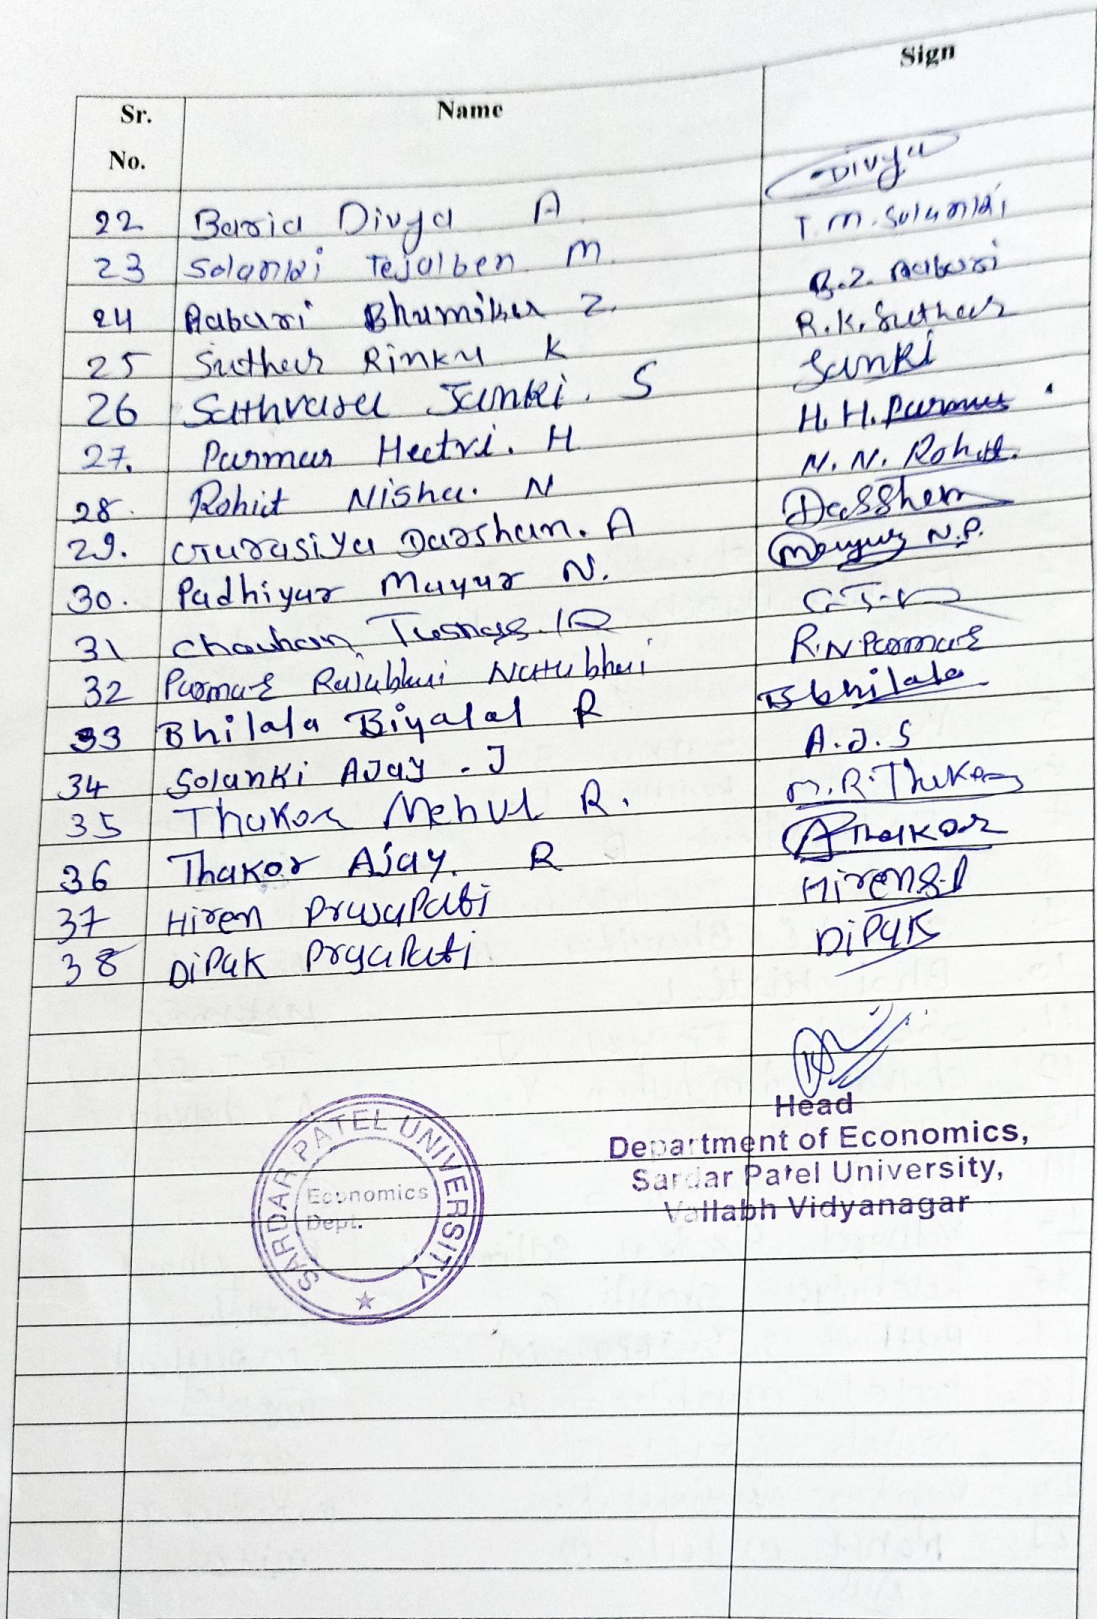 Sign
Sr. No. Name
22 Baria Divya A. Divya
23 Solanki Tejalben M. T. M. Solanki
24 Rabari Bhumika Z. B. Z. Rabari
25 Suthar Rinku K R. K. Suthar
26 Sathvara Janki. S Janki
27. Parmar Heetvi. H H. H. Parmar
28. Rohit Nisha. N N. N. Rohit.
29. Garasiya Darshan. A
30. Padhiyar Mayur N. Mayur N.P.
31 Chauhan
32 Parmar Rajubhai Natubhai R.N Parmar
33 Bhilala Biyalal R Bbhilala
34 Solanki AJay . J A.J.S
35 Thakor Mehul R. M.R. Thakor
36 Thakor AJay. R AThakor
37 Hiren Prajapati Hiren
38 DiPak Prajapati DiPak
Head
Department of Economics,
Sardar Patel University,
Vallabh Vidyanagar
SARDAR PATEL UNIVERSITY
Economics
Dept.